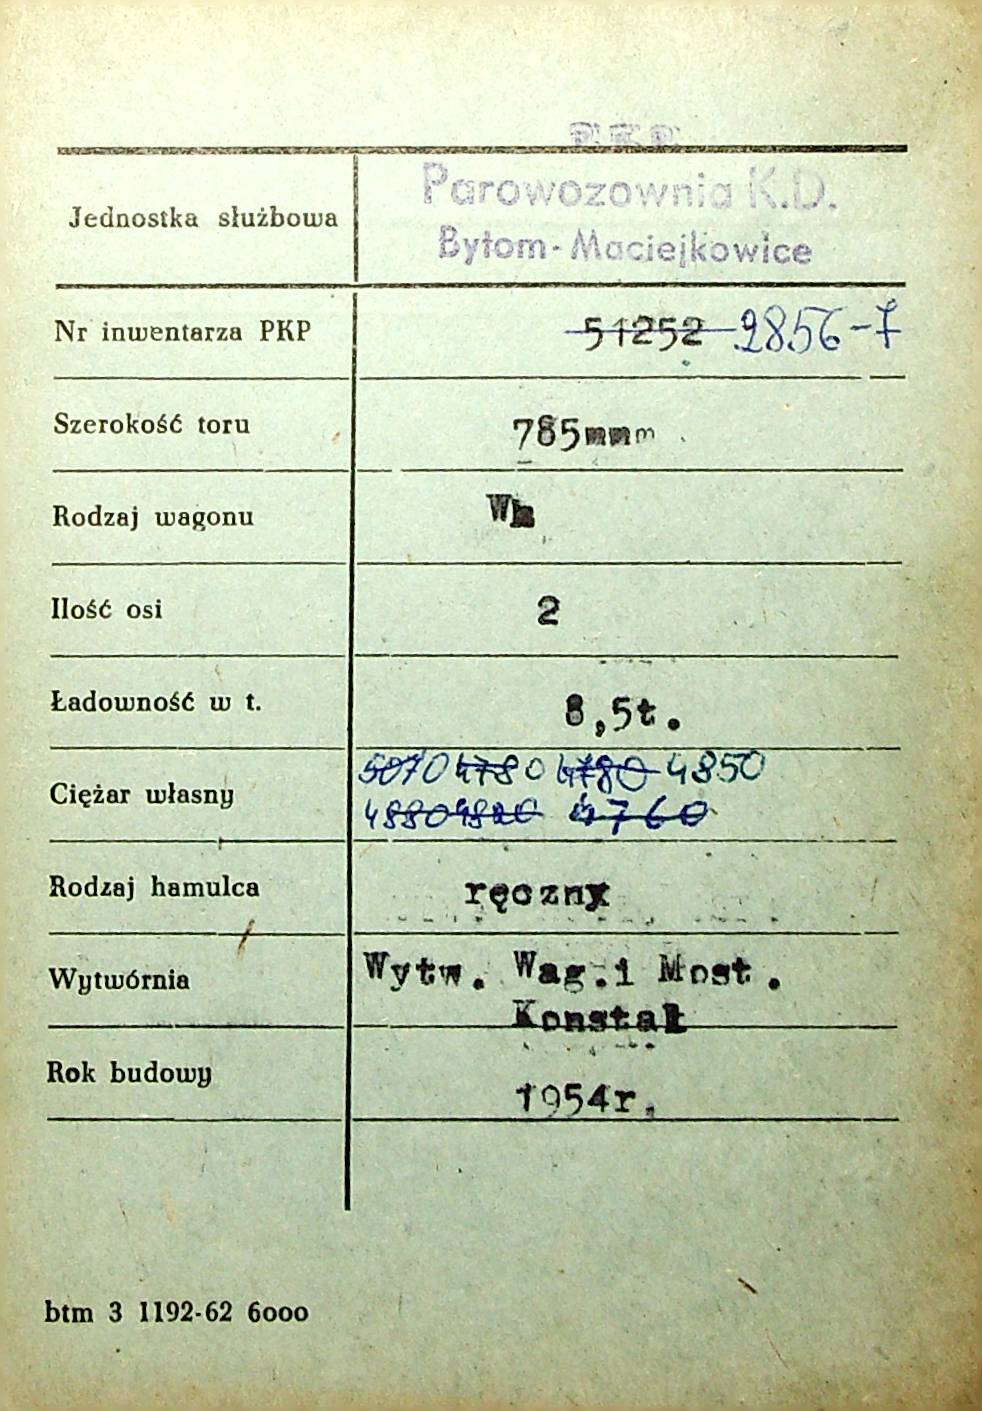 P.K.P.
Parowozownia K.D.
Jednostka służbowa Bytom-Maciejkowice
Nr inwentarza PKP 51252 2856-7
Szerokość toru 785mmm
Rodzaj wagonu
Ilość osi 2
Ładowność w t. 8,5t.
5070 4780 4780 4850
Ciężar własny
4880 4820 4760
Rodzaj hamulca ręczny
Wytwórnia Wytw. Wag. i Most.
Konstal
Rok budowy 1954r.
btm 3 1192-62 6ooo